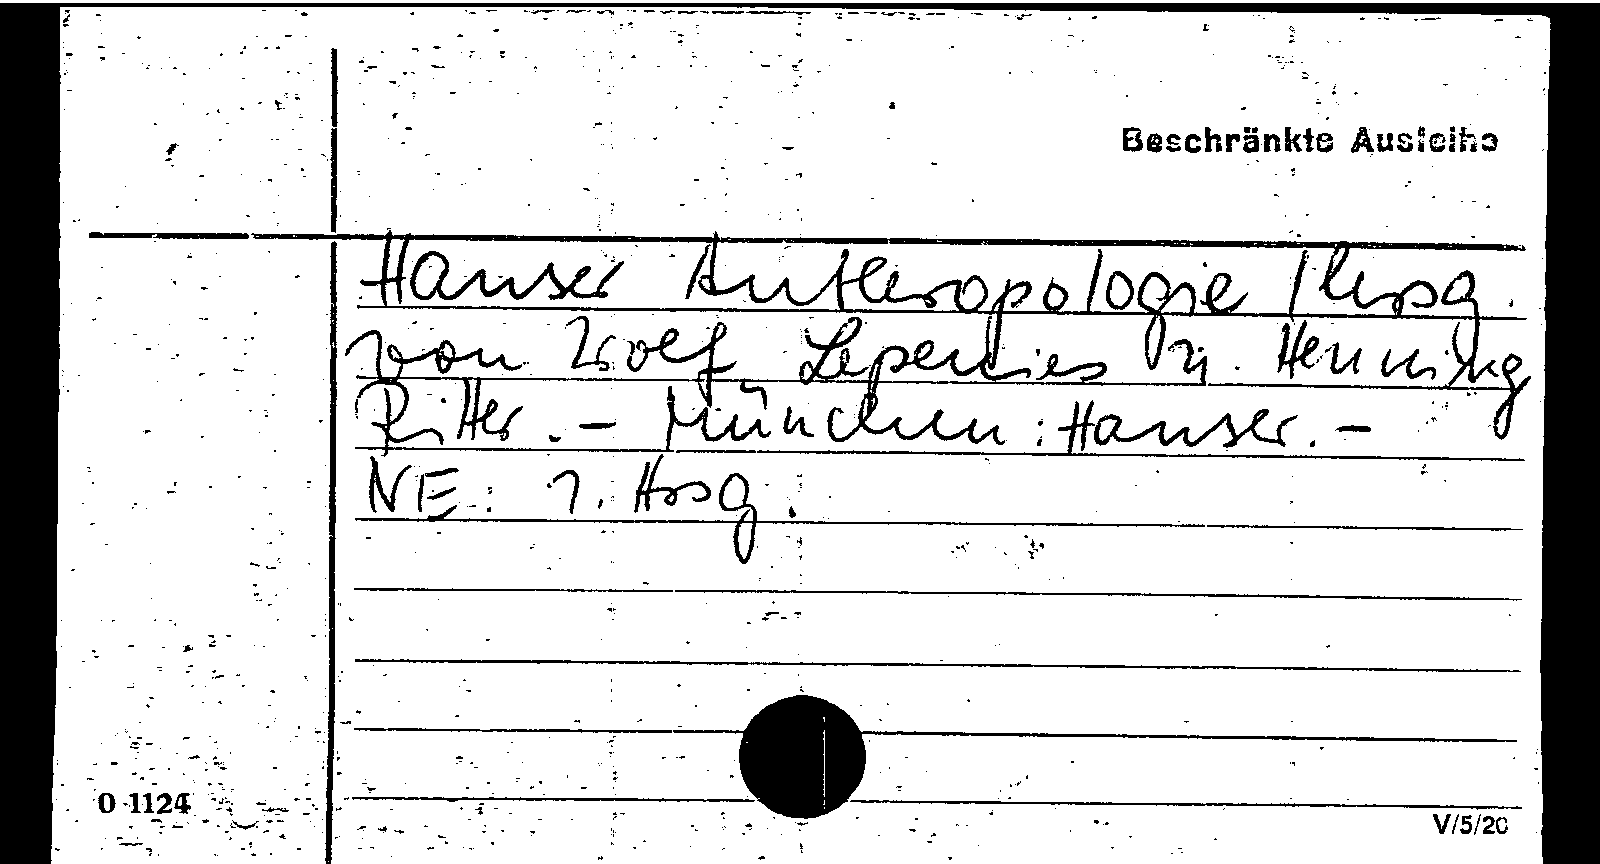 Beschränkte Ausleihe
Hanser Anthropologie / hrsg.
von Wolf Lepenies u. Henning
Ritter. – München: Hanser. –
NE: 1. Hrsg.
O 1124
V/5/20